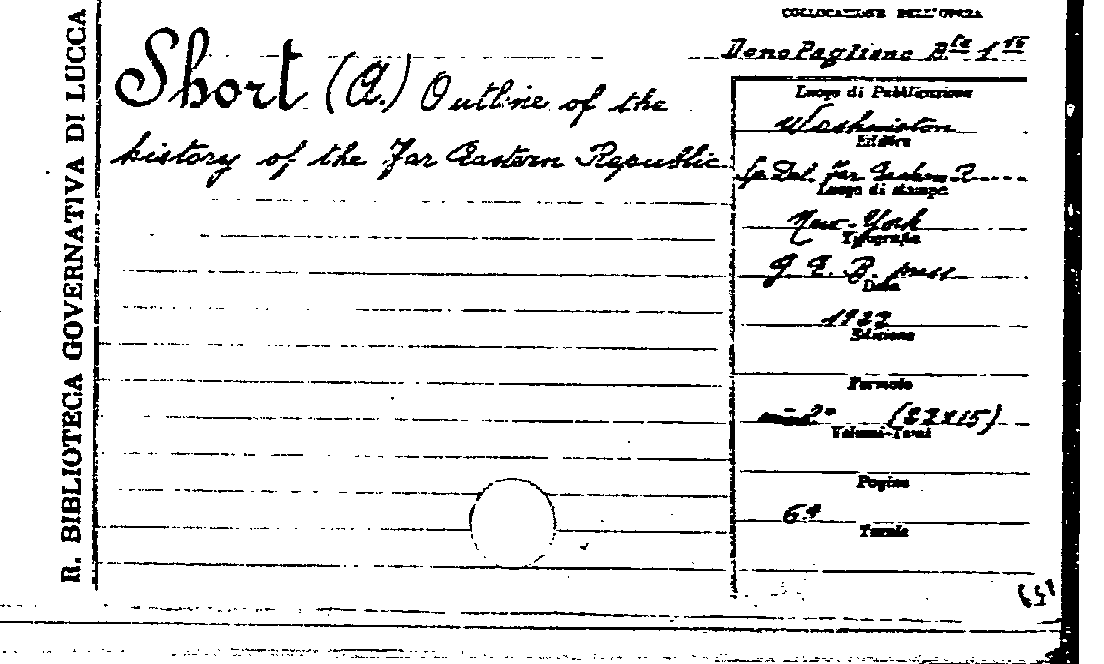 R. BIBLIOTECA GOVERNATIVA DI LUCCA
Short (A.) Outline of the
history of the Far Eastern Republic.
COLLOCAZIONE DELL'OPERA
Dono Pagliano B.ta 1
Luogo di Pubblicazione
Washinston
Editore
Sp. Del. Far Eastern R
Luogo di stampa
New-York
Tipografia
J. E. B. press
Data
1922
Edizione
Formato
(22x15)
Volumi-Tomi
Pagine
Tavole